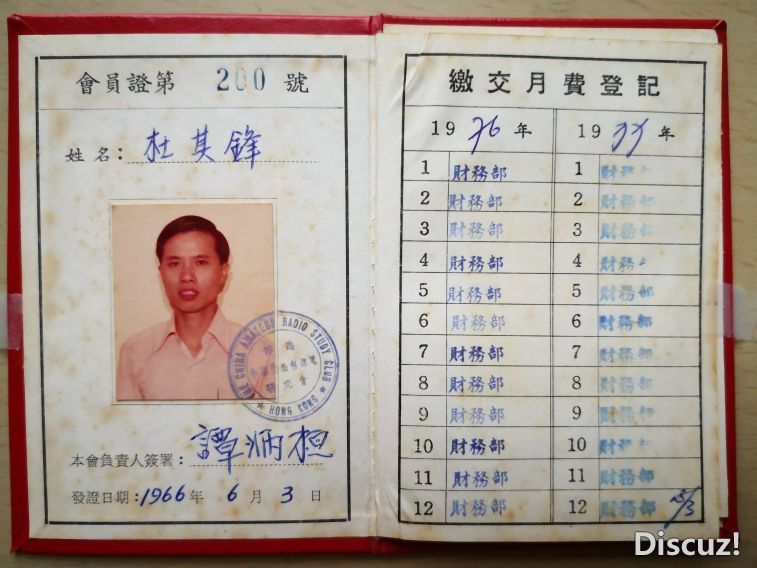 會員證第 200 號
姓名: 杜其鋒
THE CHINA AMATEUR RADIO STUDY CLUB
HONG KONG
本會負責人簽署: 譚炳桓
發證日期: 1966年 6月 3日
繳交月費登記
1976年 1977年
1 財務部 1 財務
2 財務部 2 財務部
3 財務部 3 財務部
4 財務部 4 財務
5 財務部 5 財務部
6 財務部 6 財務部
7 財務部 7 財務部
8 財務部 8 財務部
9 財務部 9 財務部
10 財務部 10 財務部
11 財務部 11 財務部
12 財務部 12 財務部
Discuz!